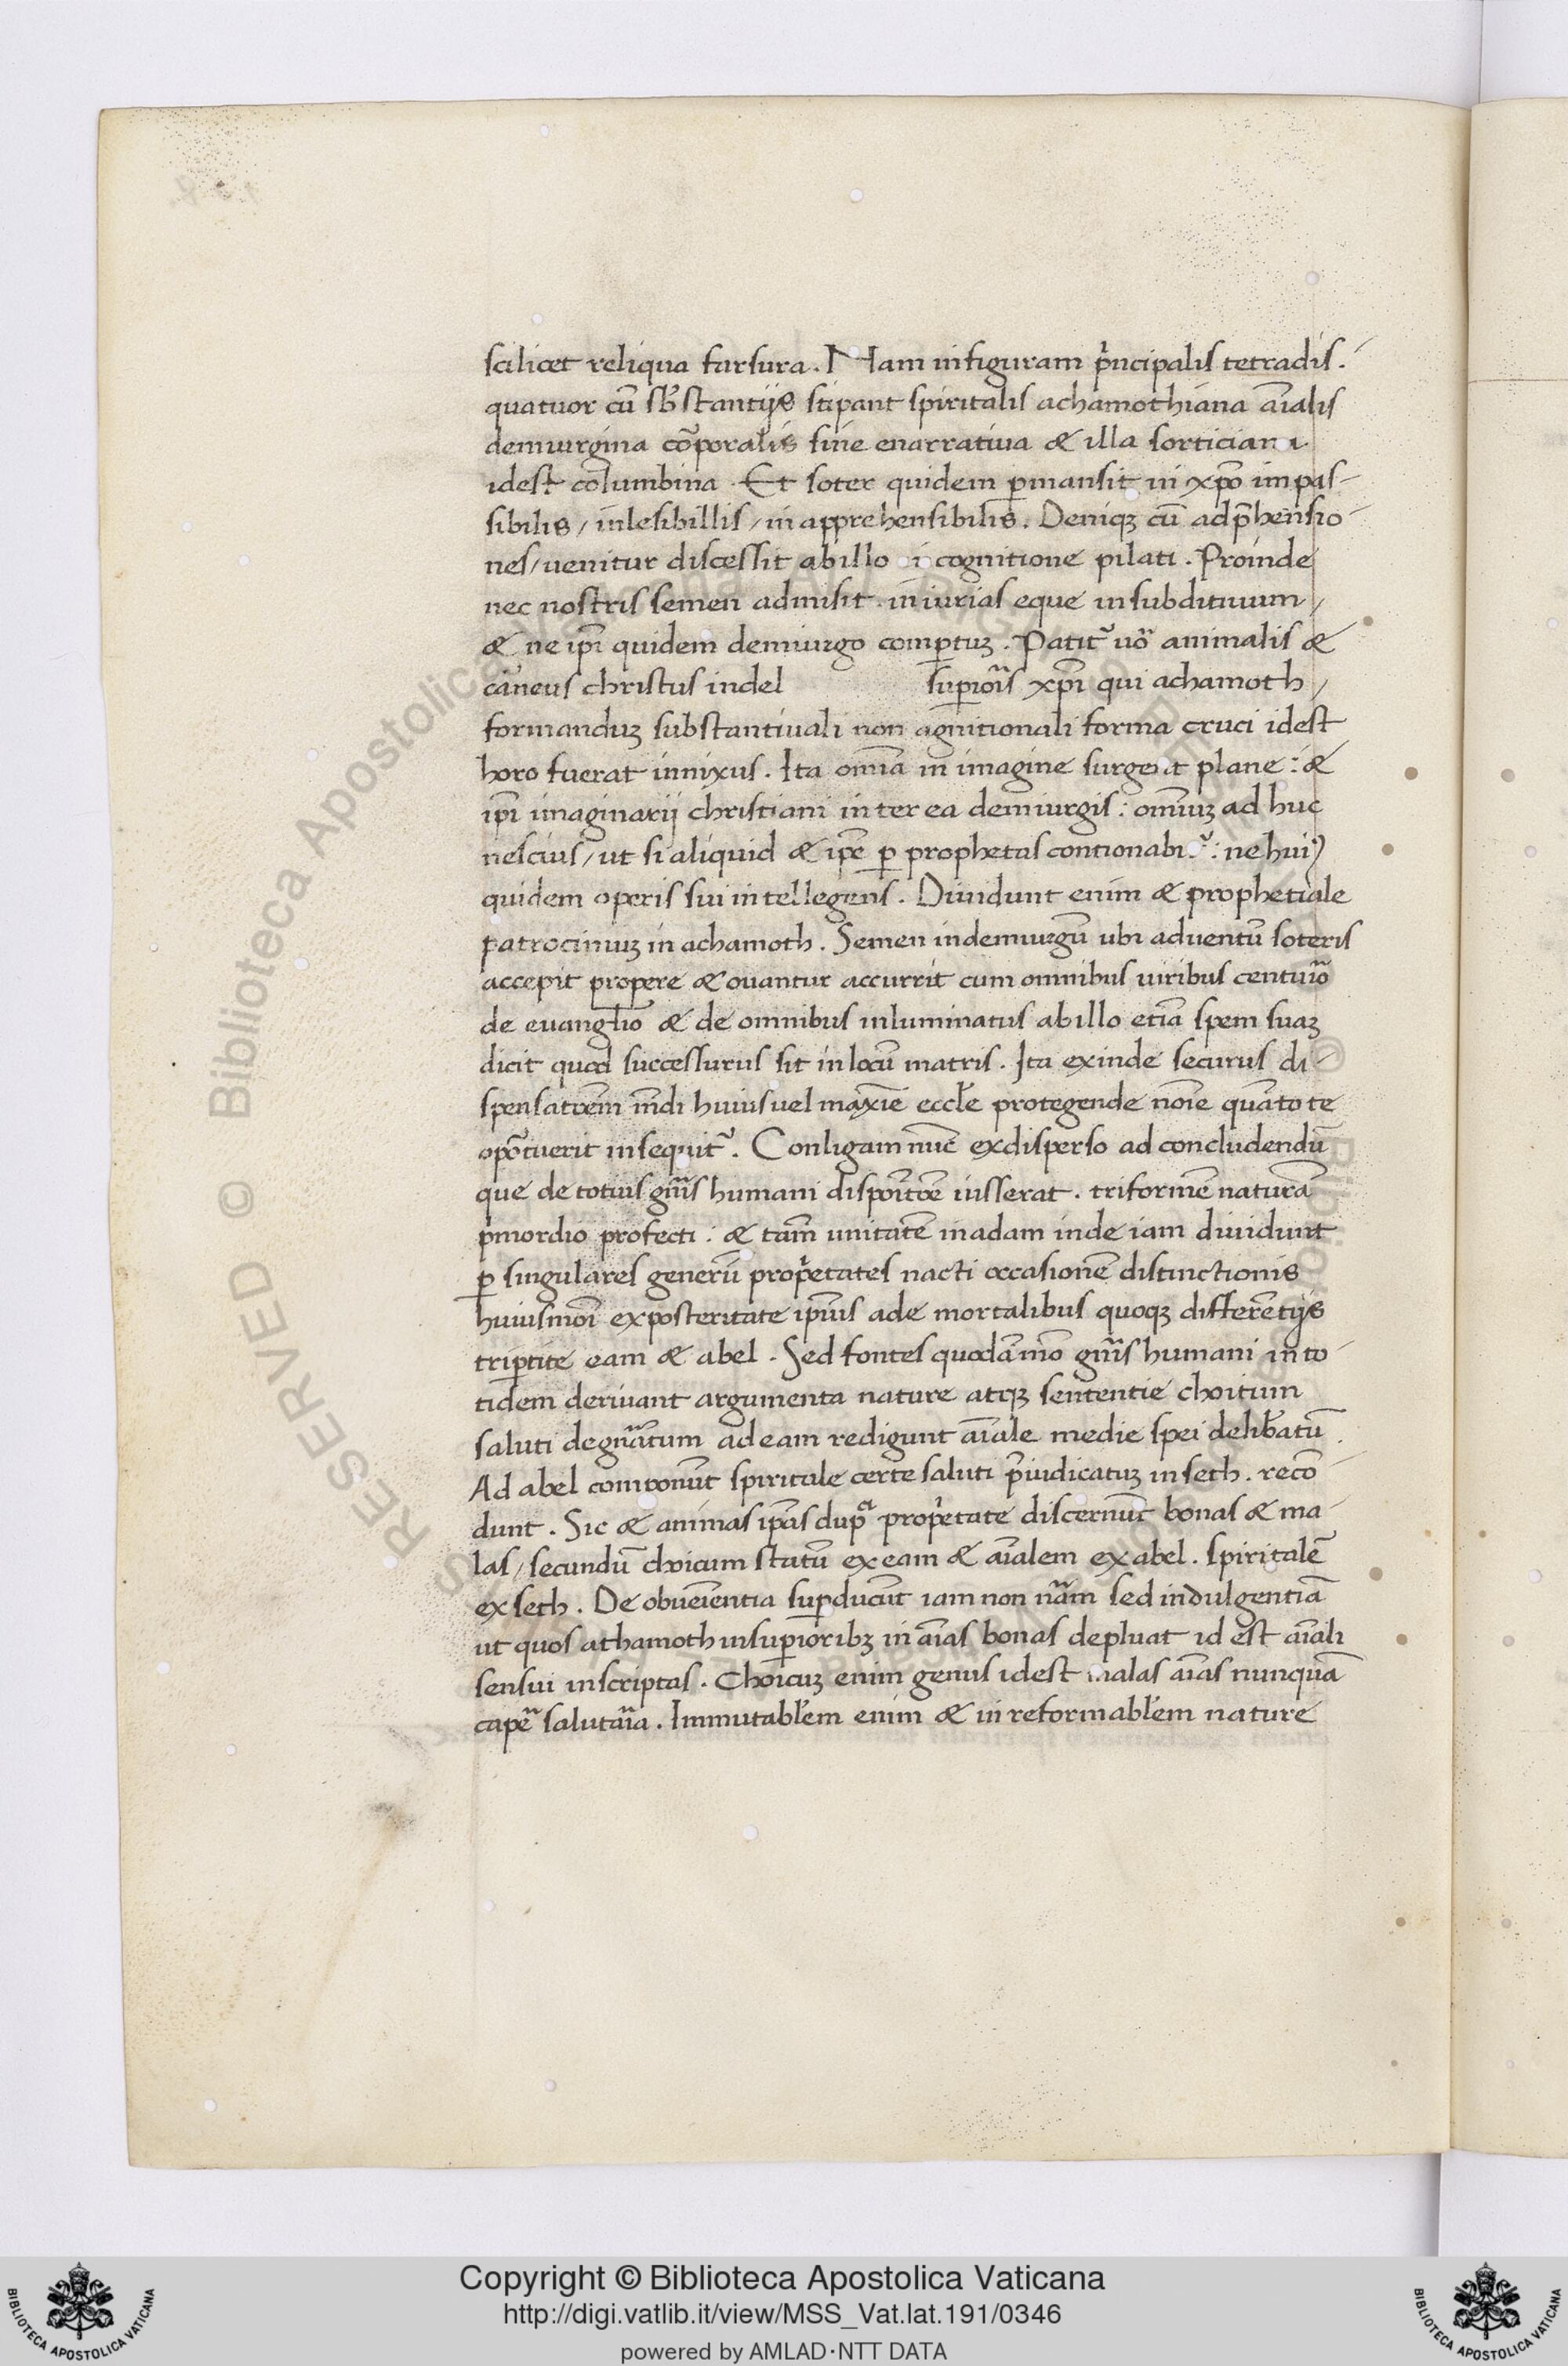 scilicet reliqua fursura. Nam in figuram pͥncipalis tetradis.
quatuor cū sƀstantijs stipant spiritalis achamothiana aīalis
demiurgina cōrporalis sine enarrativa & illa sorticiana
idest columbina. Et soter quidem ꝑmansit in xp̄o impas-
sibilis / inlesibillis / in apprehensibilis. Deniqꝫ cū adp̄hensio-
nes / venitur discessit ab illo i cognitione pilati. Proinde
nec nostris semen admisit. iniurias eque insubditivum /
& ne ip̄i quidem demiurgo comꝑtuꝫ. Patit᷑ uō animalis &
carneus christus indel suꝑiōis xp̄i qui achamoth /
formanduꝫ substantivali non agnitionali forma cruci idest
horo fuerat innixus. Ita omīa in imagine surgent plane: &
ip̄i imaginarij christiani inter ea demiurgis: omīuꝫ ad huc
nescius / ut si aliquid & ip̄e ꝑ prophetas contionabi᷑: ne huiꝰ
quidem operis sui intellegens. Dividunt enim & prophetiale
patrociniuꝫ in achamoth. Semen in demiurgū ubi adventū soteris
accepit propere & ovantur accurrit cum omnibus viribus centuꝛio
de evangl̄io & de omnibus inluminatus ab illo etiā spem suaꝫ
dicit quod successurus sit in locū matris. Ita exinde securus di-
spensatōem mūdi huius vel maxīe eccl̄e protegende nōie quāto te
oportuerit insequit᷑. Conligam nūc ex disperso ad concludendū
que de totius gn̄is humani dispōitōe iusserat. triformē naturā
pͥmordio profecti: & tam̄ unitatē in adam inde iam dividunt
ꝑ singulares generū propͥetates nacti occasionē distinctionis
huiusmōi ex posteritate ip̄ius ade mortalibus quoqꝫ differētijs
triꝑtite eam & abel. Sed fontes quodāmō gn̄is humani in to-
tidem derivant argumenta nature atqꝫ sententie choitum
saluti degn̄atum ad eam redigunt aīale medie spei delibatū
Ad abel componūt spiritale certe saluti p̄iudicatuꝫ in seth. recō-
dunt. Sic & animas ip̄as dupᷓ propͥetate discernūt bonas & ma-
las / secundū choicum statū ex eam & aīalem ex abel. spiritalē
ex seth. De obveīentia suꝑducūt iam non nām sed indulgentiā
ut quos athamoth insuꝑioribꝫ in aīas bonas depluat id est aīali
sensui inscriptas. Choicuꝫ enim genus idest malas aīas nunquā
caꝑe salutaia. Immutabl̄em enim & inreformabl̄em nature
Copyright © Biblioteca Apostolica Vaticana
http://digi.vatlib.it/view/MSS_Vat.lat.191/0346
powered by AMLAD·NTT DATA